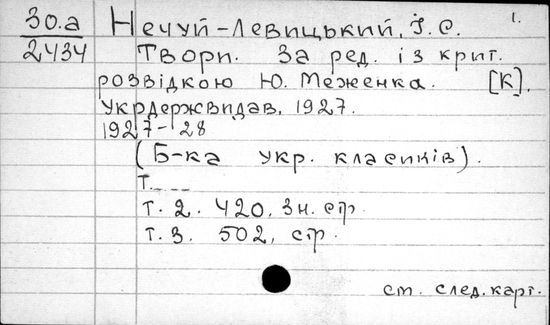 30.а
2434
1.
Нечуй-Левицький, І.С.
Твори. За ред. із крит.
розвідкою Ю. Меженка. [К].
Укрдержвидав, 1927.
1927-28
(Б-ка укр. класиків).
т.....
т. 2. 420, 3н. стр.
т. 3. 502, стр.
ст. след. карт.